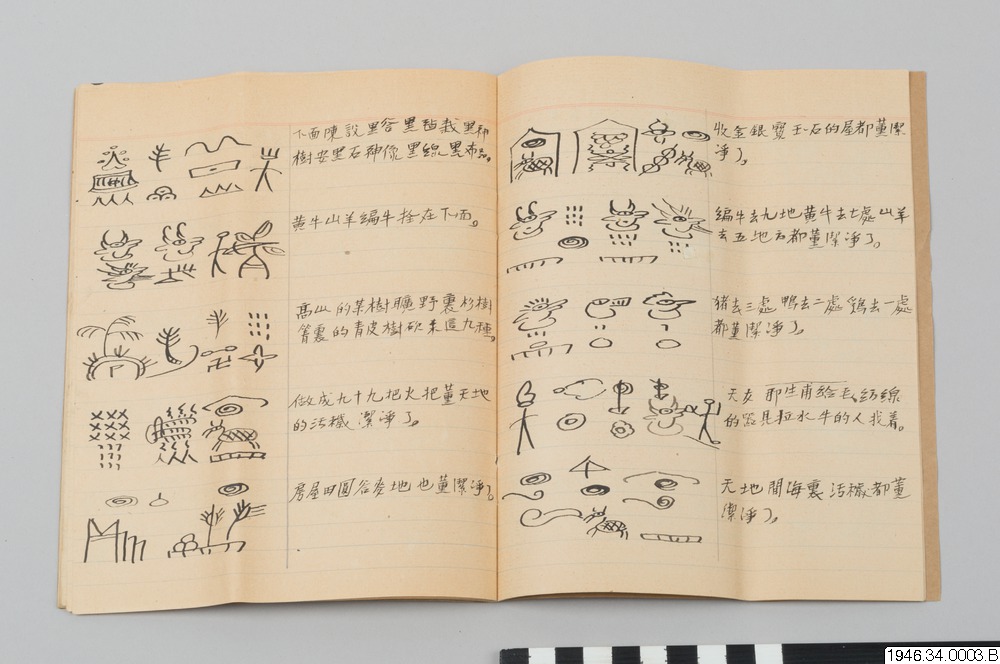 下面陳設黑谷黑石我黑神
樹安黑石神像黑線黑布
黃牛山羊編牛拴在下面。
高山的某樹曠野裏杉樹
箐裏的青皮樹砍来這九種。
做成九十九把火把董天地
的污穢潔淨了。
房屋田園谷麥地也董潔淨了。
收金銀寶玉石的屋都董潔
淨了。
編牛去九地黃牛去七處山羊
去五地方都董潔淨了。
猪去三處鴨去二處鷄去一處
都董潔淨了。
天女那生甫給毛紡線
的器具拉水牛的人找着。
天地間海裏污穢都董
潔淨了。
1946.34.0003.B